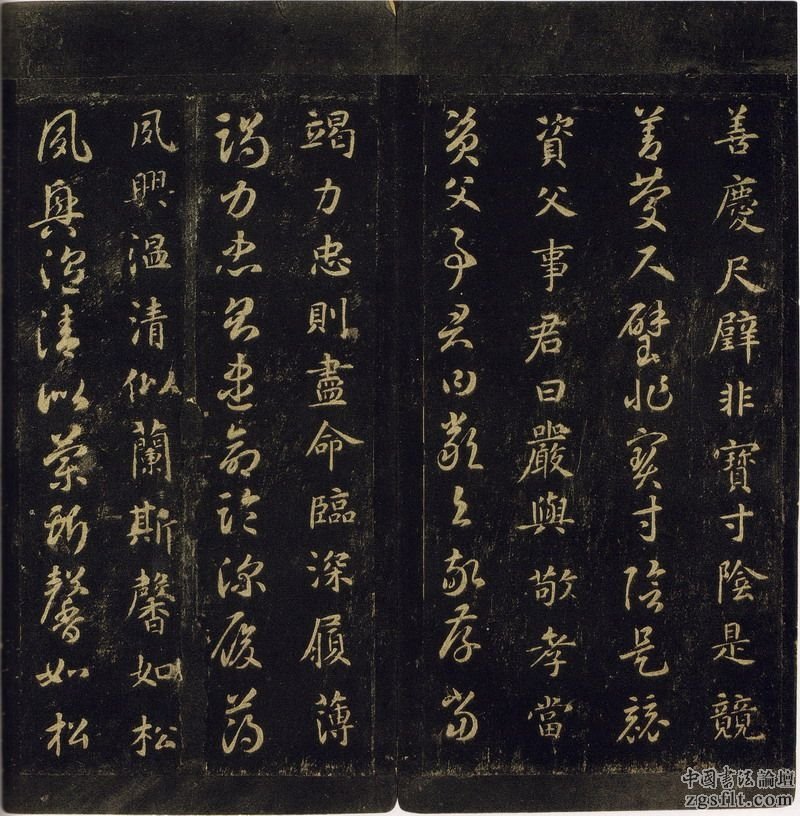 善慶尺璧非寶寸陰是競
善慶尺璧非寶寸陰是競
資父事君曰嚴與敬孝當
資父事君曰嚴與敬孝當
竭力忠則盡命臨深履薄
竭力忠則盡命臨深履薄
夙興溫清似蘭斯馨如松
夙興溫清似蘭斯馨如松
中國書法論壇
zgsflt.com